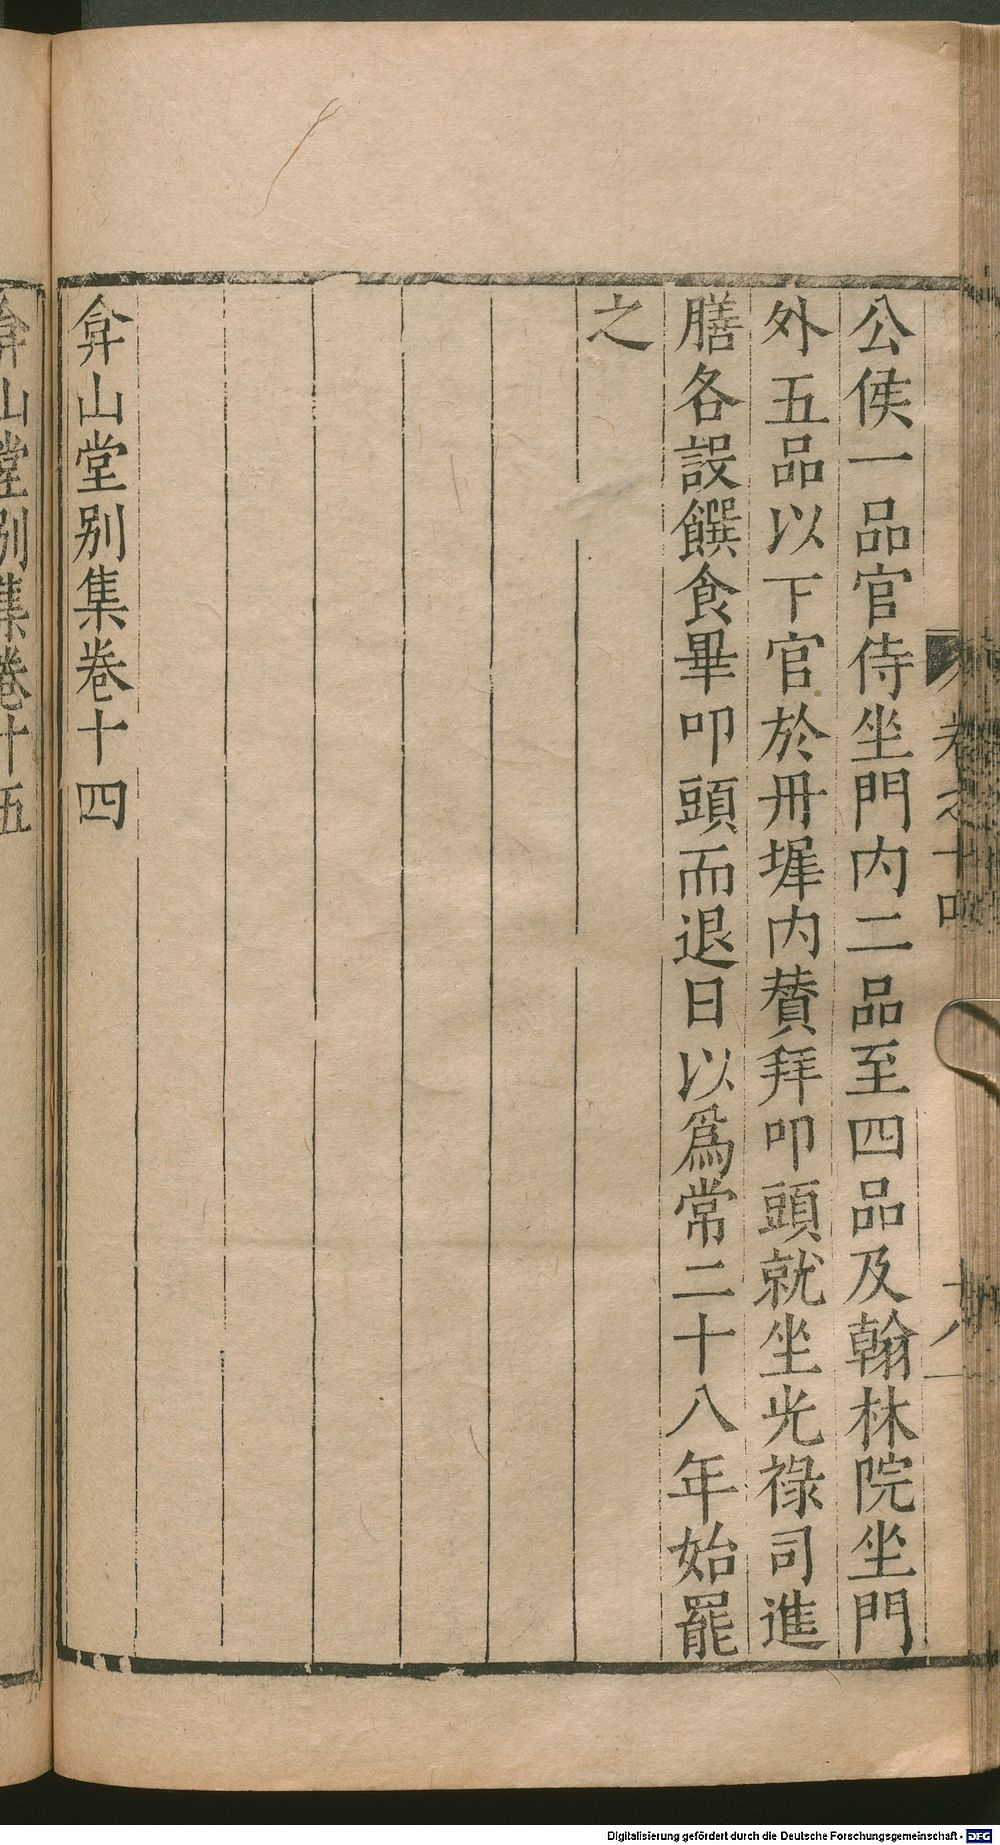 公侯一品官侍坐門内二品至四品及翰林院坐門
外五品以下官於丹墀内賛拜叩頭就坐光祿司進
膳各設饌食畢叩頭而退日以爲常二十八年始罷
之
弇山堂别集卷十四
弇山堂别集卷十五
卷之十四
十八
Digitalisierung gefördert durch die Deutsche Forschungsgemeinschaft - DFG